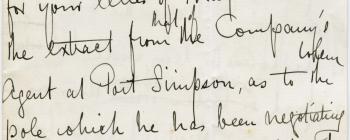 for your letter of
the extract from the Company's
Agent at Port Simpson, as to the totem
pole which he has been negotiating